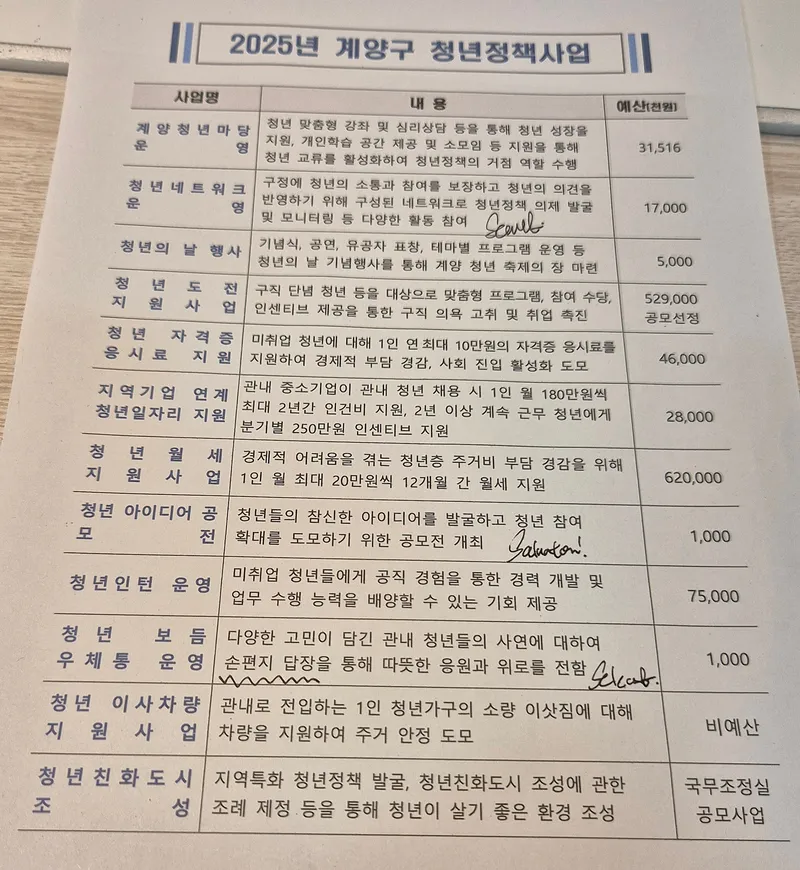 2025년 계양구 청년정책사업
사업명 내 용 예산(천원)
계양청년마당
운 영
청년 맞춤형 강좌 및 심리상담 등을 통해 청년 성장을
지원, 개인학습 공간 제공 및 소모임 등 지원을 통해
청년 교류를 활성화하여 청년정책의 거점 역할 수행
31,516
청년네트워크
운 영
구정에 청년의 소통과 참여를 보장하고 청년의 의견을
반영하기 위해 구성된 네트워크로 청년정책 의제 발굴
및 모니터링 등 다양한 활동 참여
17,000
청년의 날 행사
기념식, 공연, 유공자 표창, 테마별 프로그램 운영 등
청년의 날 기념행사를 통해 계양 청년 축제의 장 마련
5,000
청 년 도 전
지 원 사 업
구직 단념 청년 등을 대상으로 맞춤형 프로그램, 참여 수당,
인센티브 제공을 통한 구직 의욕 고취 및 취업 촉진
529,000
공모선정
청년 자격증
응시료 지원
미취업 청년에 대해 1인 연최대 10만원의 자격증 응시료를
지원하여 경제적 부담 경감, 사회 진입 활성화 도모
46,000
지역기업 연계
청년일자리 지원
관내 중소기업이 관내 청년 채용 시 1인 월 180만원씩
최대 2년간 인건비 지원, 2년 이상 계속 근무 청년에게
분기별 250만원 인센티브 지원
28,000
청 년 월 세
지 원 사 업
경제적 어려움을 겪는 청년층 주거비 부담 경감을 위해
1인 월 최대 20만원씩 12개월 간 월세 지원
620,000
청년 아이디어 공
모 전
청년들의 참신한 아이디어를 발굴하고 청년 참여
확대를 도모하기 위한 공모전 개최
1,000
청년인턴 운영
미취업 청년들에게 공직 경험을 통한 경력 개발 및
업무 수행 능력을 배양할 수 있는 기회 제공
75,000
청 년 보 듬
우체통 운영
다양한 고민이 담긴 관내 청년들의 사연에 대하여
손편지 답장을 통해 따뜻한 응원과 위로를 전함
1,000
청년 이사차량
지 원 사 업
관내로 전입하는 1인 청년가구의 소량 이삿짐에 대해
차량을 지원하여 주거 안정 도모
비예산
청년친화도시
조 성
지역특화 청년정책 발굴, 청년친화도시 조성에 관한
조례 제정 등을 통해 청년이 살기 좋은 환경 조성
국무조정실
공모사업